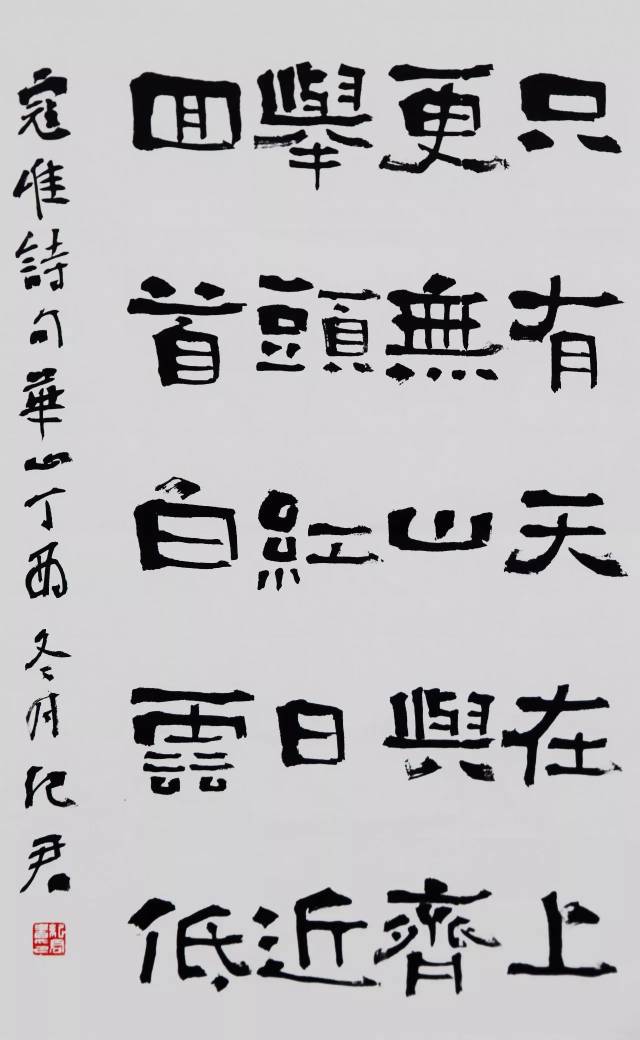 只有天在上
更無山與齊
舉頭紅日近
回首白雲低
寇准詩句華山丁酉冬月纪君